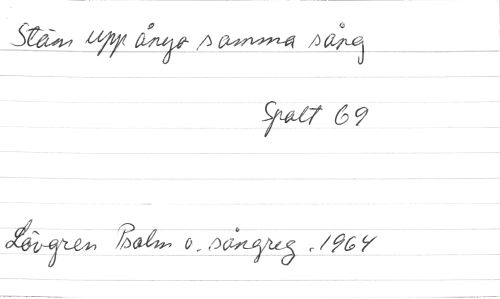 Stäm upp ånyo samma sång
Spalt 69
Lövgren Psalm o. sångreg. 1964